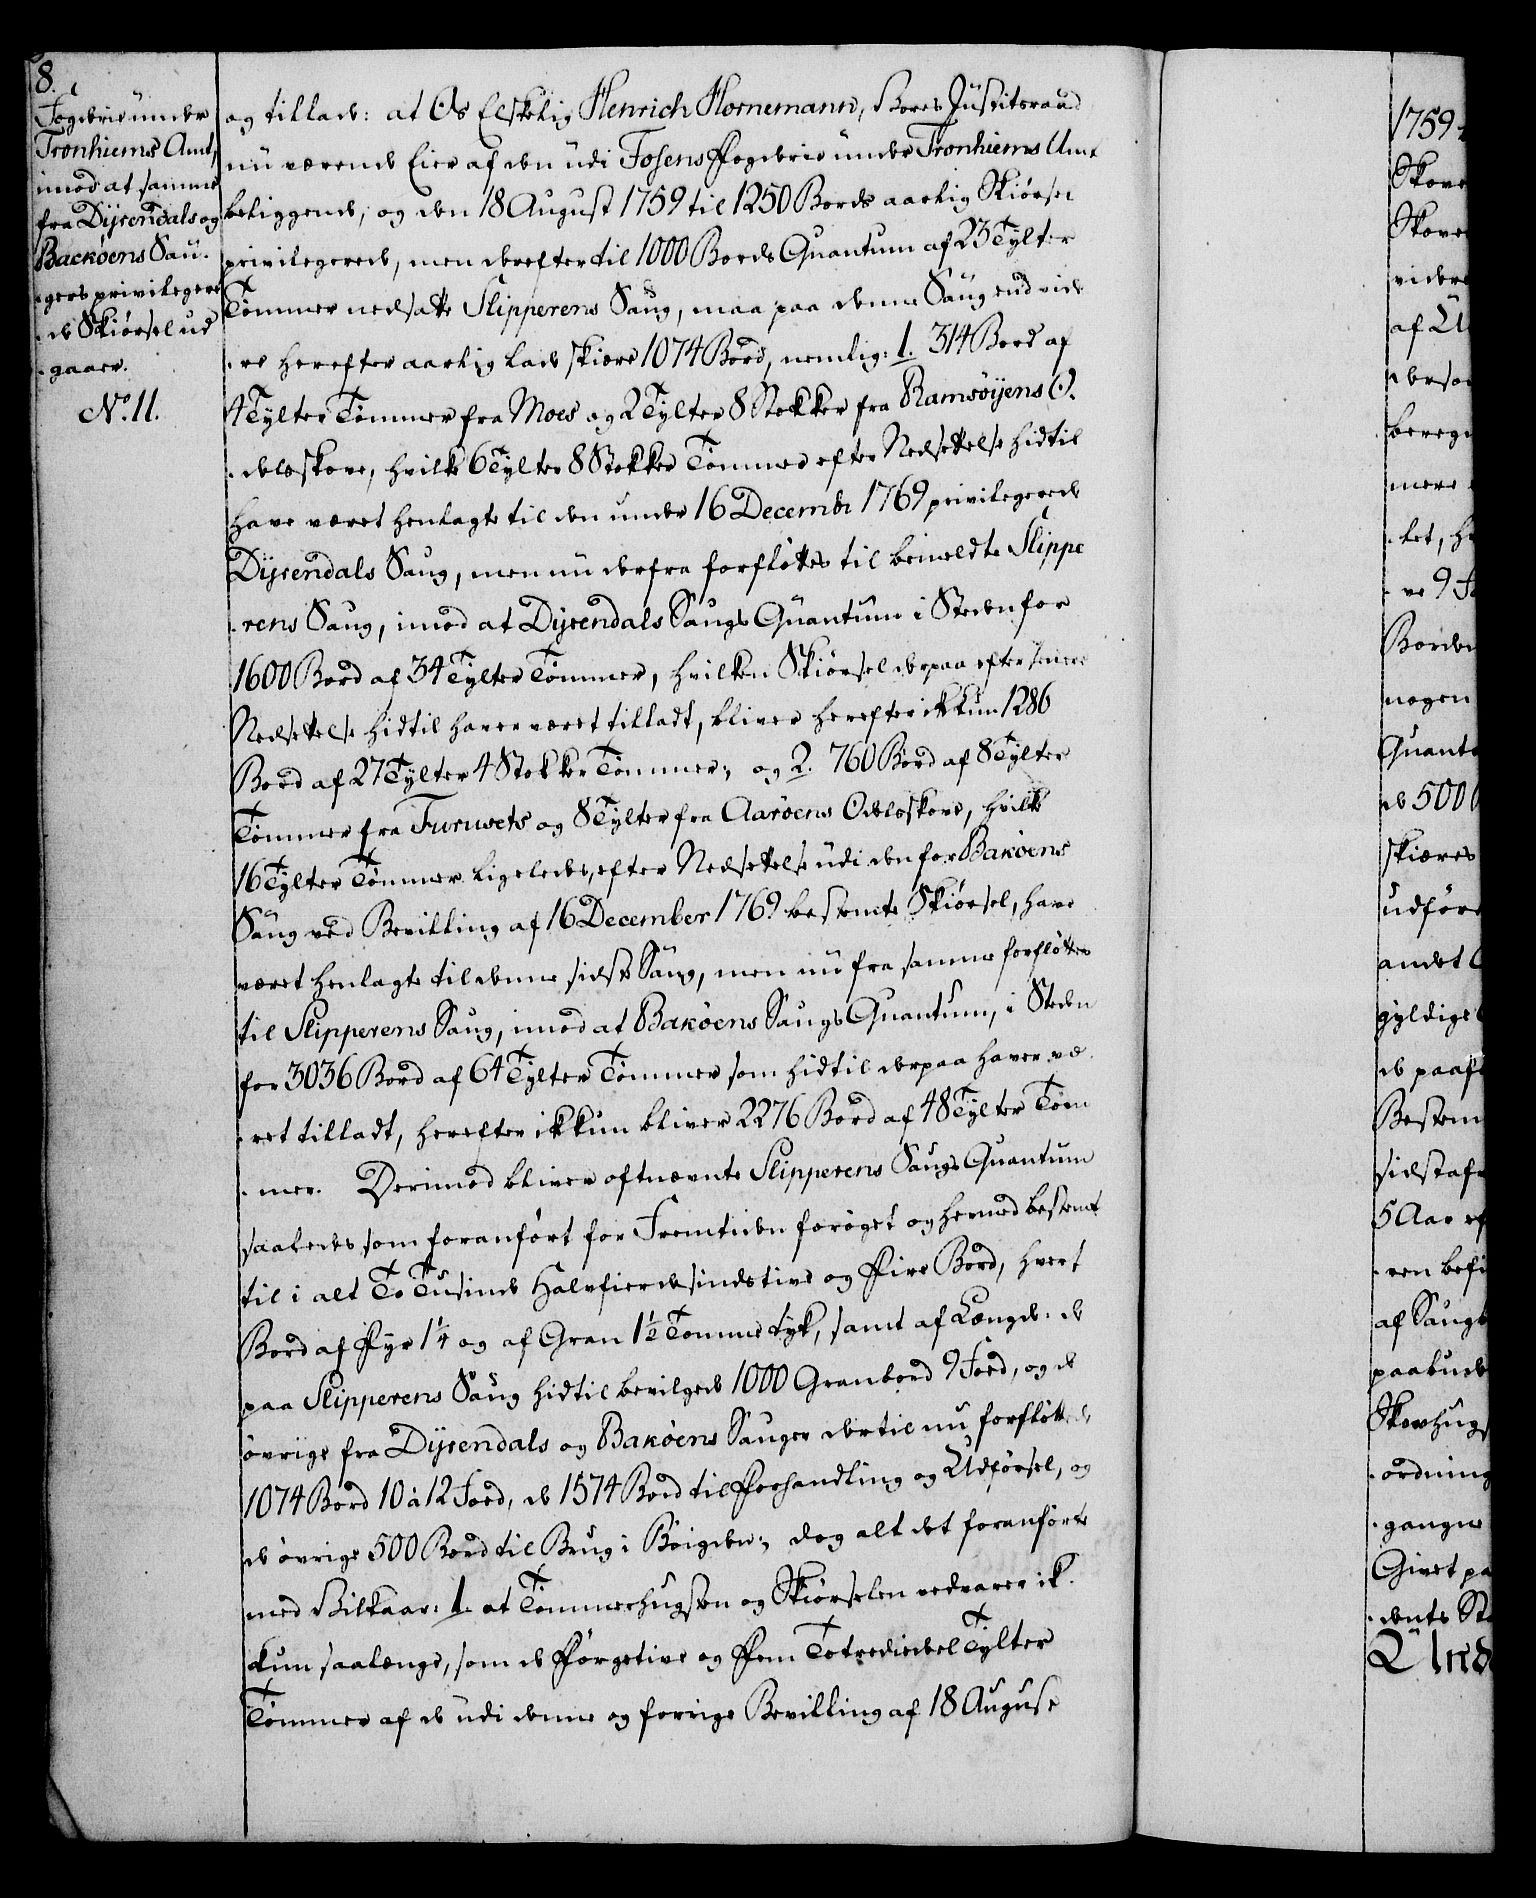 8.
Fogderie under
Tronhiems Amt,
imod at samme
fra Dÿrendals og
Backöens Sau-
-gers privilegere
-de Skiörsel ud
-gaaer.
No. 11.
og tillade: at Os Elskelig Henrich Hornemann, Vores Justitsraad
nu værende Eier af den udi Fosens Fogderie under Tronhiems Amt
beliggende, og den 18 August 1759 til 1250 Bords aarlig Skiörsel
privilegerede, men derefter til 1000 Bords Quantum af 23 Tylter
Tømmer nedsatte Slipperens Saug, maa paa denne Saug end vide
-re herefter aarlig lade skiære 1074 Bord, nemlig: 1. 314 Bord af
4 Tylter Tømmer fra Moes og 2 Tylter 8 Stokker fra Ramsöÿens O-
-delsskove, hvilke 6 Tylter 8 Stokker Tømmer efter Nedsettelse hidtil
have været henlagte til den under 16 Decembr 1769 privilegerede
Dÿrendals Saug, men nu derfra forflöttes til bemeldte Slippe
-rens Saug, imod at Dÿrendals Saugs Quantum i Steden for
1600 Bord af 34 Tylter Tømmer, hvilken Skiörsel derpaa efter
Nedsettelse hidtil haver været tilladt, bliver herefter ikkun 1286
Bord af 27 Tylter 4 Stokker Tømmer; og 2. 760 Bord af 8 Tylter
Tømmer fra Furusets og 8 Tylter fra Aaröens Odelsskove, hvilke
16 Tylter Tømmer ligeledes, efter Nedsettelse udi den for Baköens
Saug ved Bevilling af 16 December 1769 bestemte Skiörsel, have
været henlagte til denne sidste Saug, men nu fra samme forflöttes
til Slipperens Saug, imod at Baköens Saugs Quantum, i Steden
for 3036 Bord af 64 Tylter Tømmer som hidtil derpaa haver væ-
-ret tilladt, herefter ikkun bliver 2276 Bord af 48 Tylter Töm
-mer. Derimod bliver oftnævnte Slipperens Saugs Quantum
saaledes som foranfört for Fremtiden foröget og hermed bestemt
til i alt To Tusinde Halvfierdesindstive og Fire Bord, hvert
Bord af Fyr 1 1/4 og af Gran 1 1/2 Tomme tyk, samt af Længde: de
paa Slipperens Saug hidtil bevilgede 1000 Granbord 9 Foed, og de
övrige fra Dÿrendals og Baköens Sauger dertil nu forflöttede
1074 Bord 10 à 12 Foed, de 1574 Bord til Forhandling og Udförsel, og
de övrige 500 Bord til Brug i Böigden; dog alt det foranförte
med Vilkaar: 1. at Tømmerhugsten og Skiörselen vedvarer ik-
kun saalænge, som de Førgetive og Fem Totrediedeel Tylter
Tømmer af de udi denne og forrige Bevilling af 18 August
1759
Skove
Skove
videre
af
bereg
mere
-let,
-re 9
Borden
nogen
Quant
de 500
skiæres
udföre
andet
gyldige
de paaf
Bestem
sidst af
5 Aar ef
-ren befi
af Saug
paabude
Skovhugs
-ordning
-gangne
Givet pa
-dents St
Unde